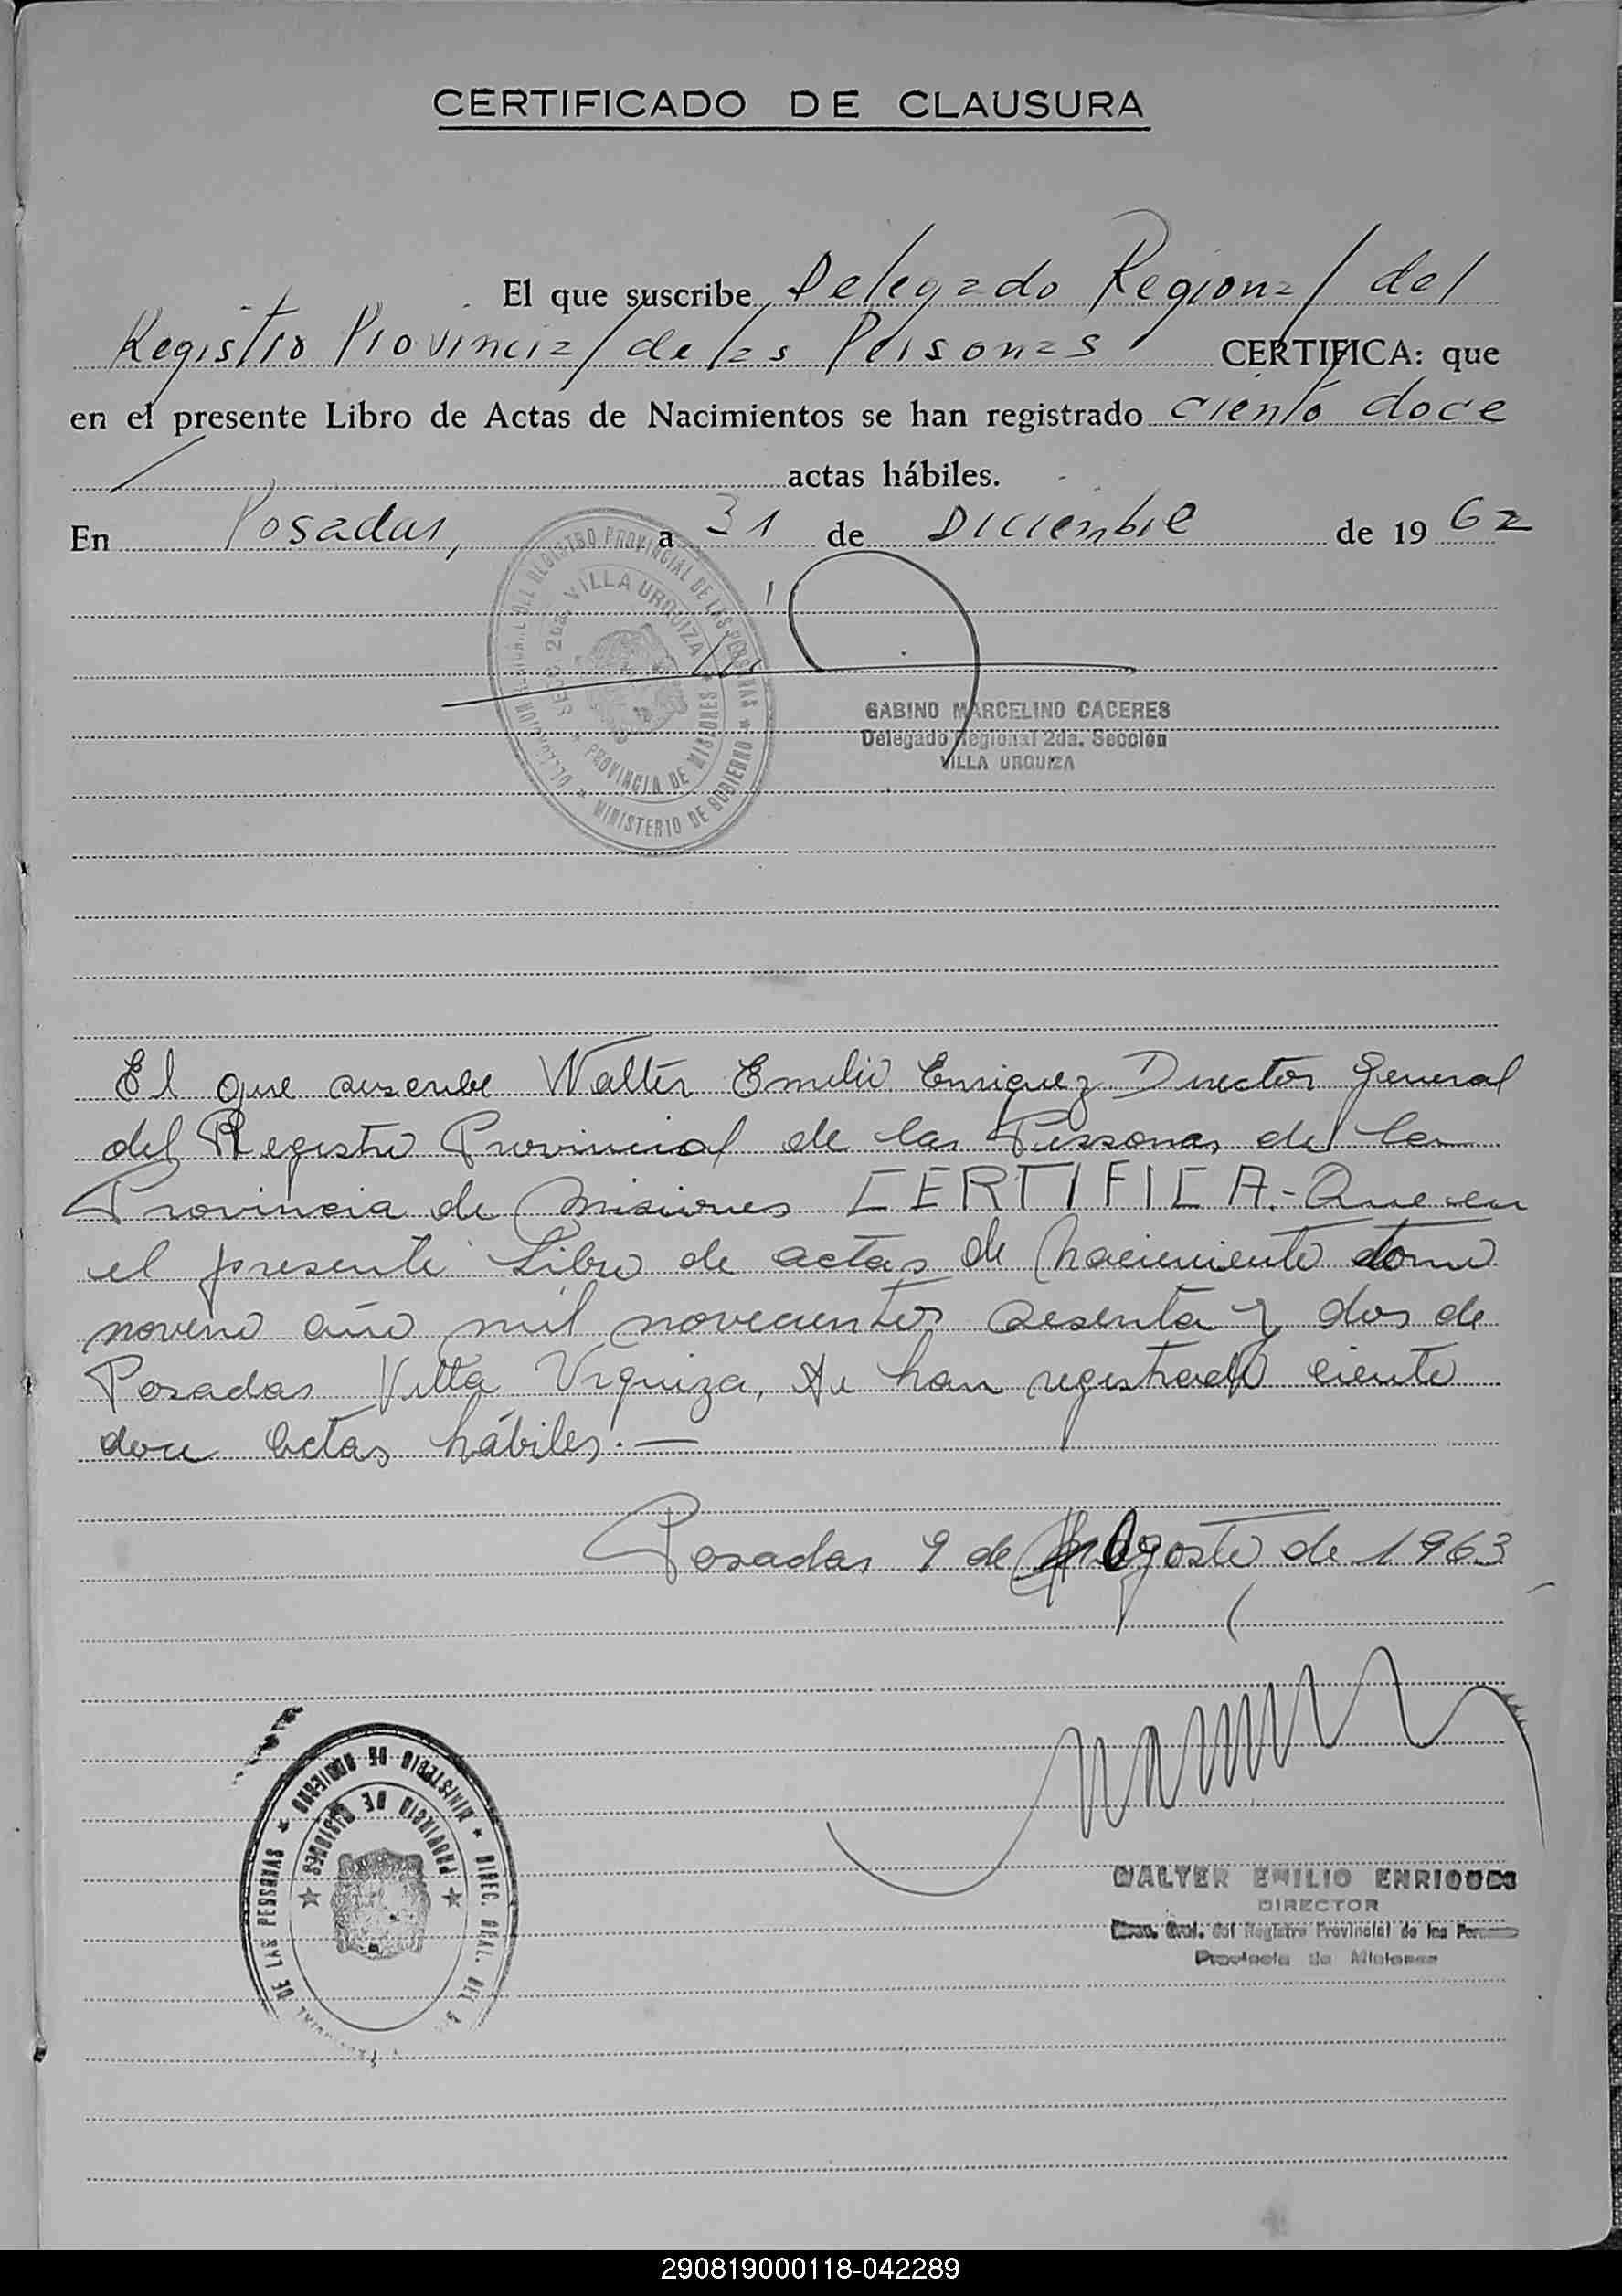 CERTIFICADO DE CLAUSURA
El que suscribe Delegado Regional del
Registro Provincial de las Personas CERTIFICA: que
en el presente Libro de Actas de Nacimientos se han registrado ciento doce
actas hábiles.
En Posadas, a 31 de Diciembre de 1962
REGISTRO PROVINCIAL DE LAS PERSONAS * MINISTERIO DE GOBIERNO *
SECC. 2da. VILLA URQUIZA * PROVINCIA DE MISIONES *
GABINO MARCELINO CACERES
Delegado Regional 2da. Sección
VILLA URQUIZA
El que suscribe Walter Emilio Enriquez Director General
del Registro Provincial de las Personas de la
Provincia de Misiones CERTIFICA.- Que en
el presente Libro de actas de Nacimiento tomo
noveno año mil novecientos sesenta y dos de
Posadas Villa Urquiza, se han registrado ciento
doce actas hábiles.—
Posadas 9 de Agosto de 1963
MINISTERIO DE GOBIERNO * DIREC. GRAL. DEL
DE LAS PERSONAS *
PROVINCIA DE MISIONES
WALTER EMILIO ENRIQUEZ
DIRECTOR
Gral. del Registro Provincial de las Personas
Provincia de Misiones
290819000118-042289